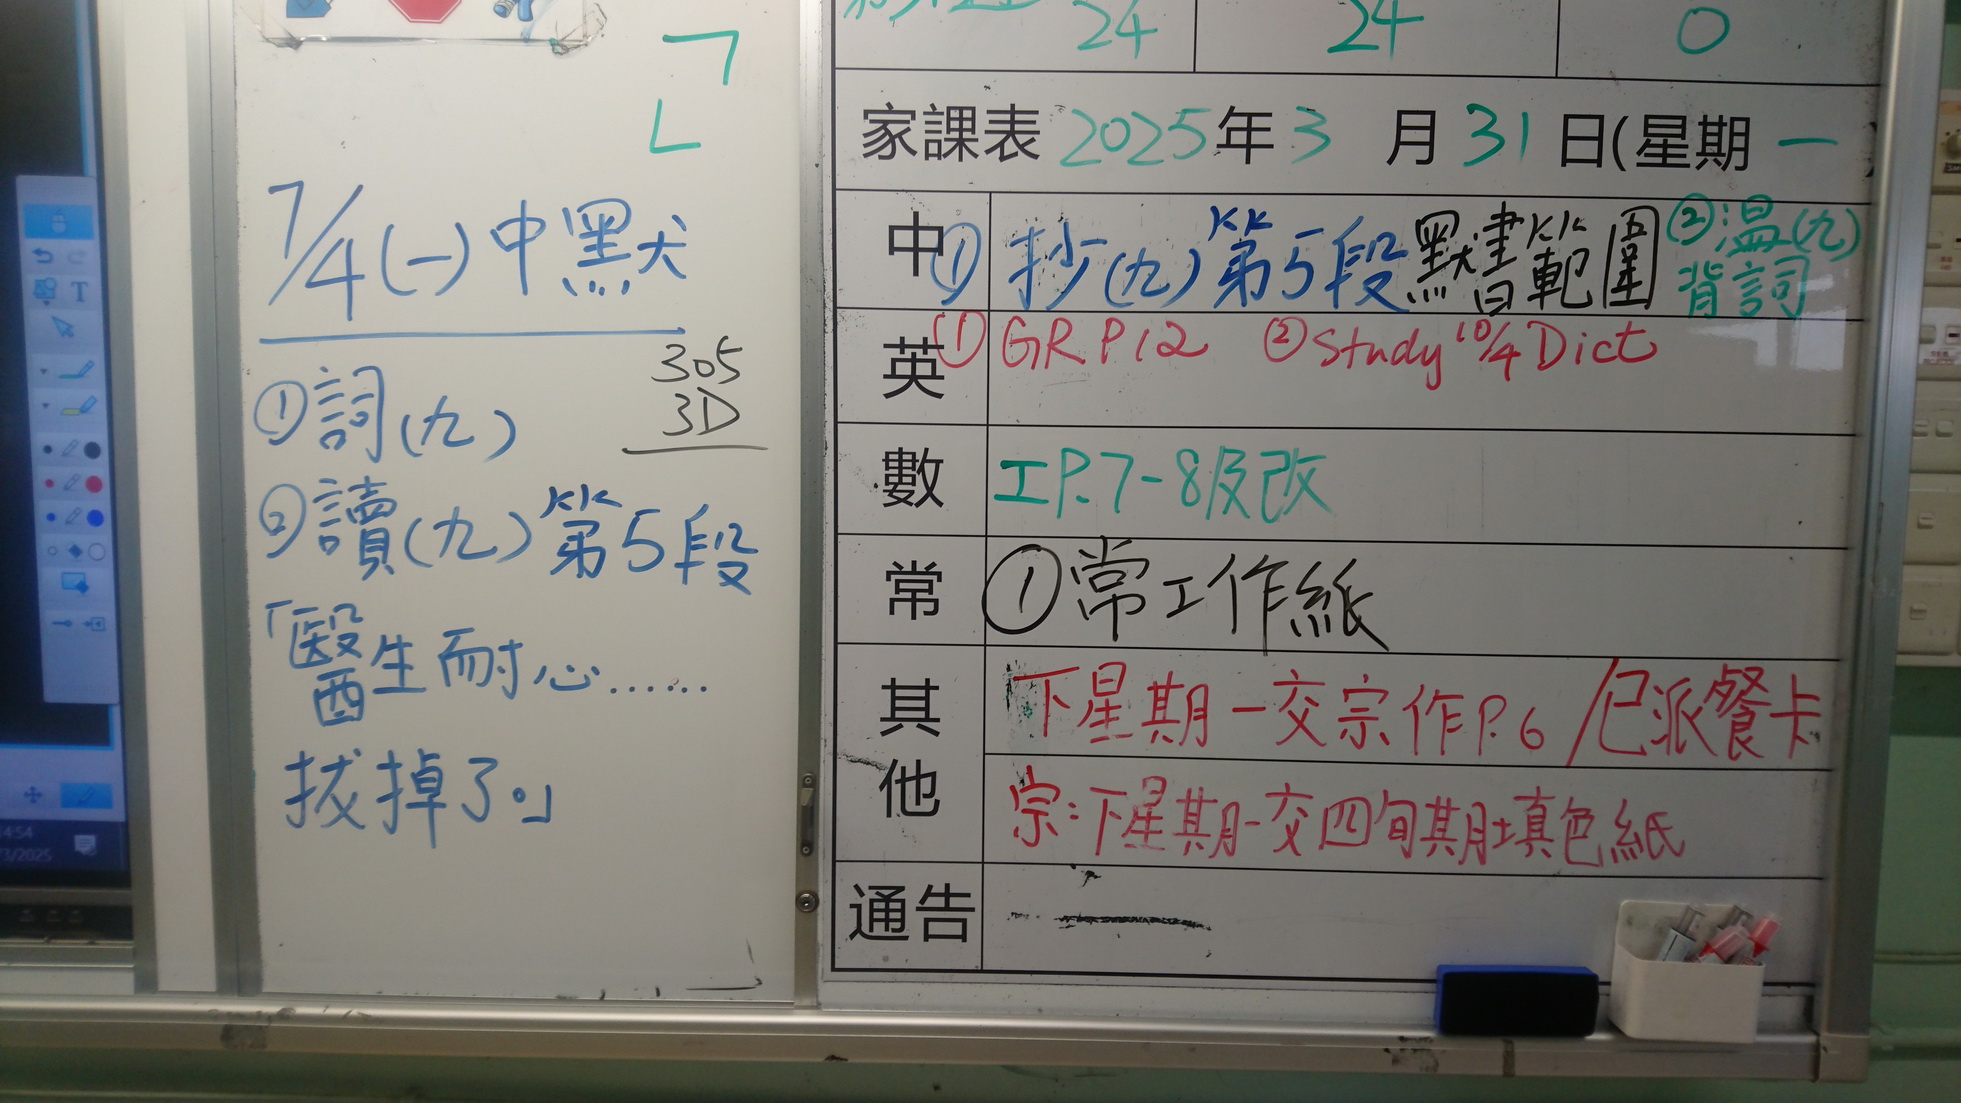 7/4(一)中默
305
3D
①詞(九)
②讀(九)第5段
「醫生耐心……
拔掉了。」
24 24 0
家課表 2025年3月31日(星期一
中 ①抄(九)第5段默書範圍 ②溫(九)
背詞
英 ①GR P12 ②Study 10/4 Dict
數 工P.7-8及改
常 ①常工作紙
其他 下星期一交宗作P.6/已派餐卡
宗:下星期一交四旬期填色紙
通告 —
T
14:54
3/2025